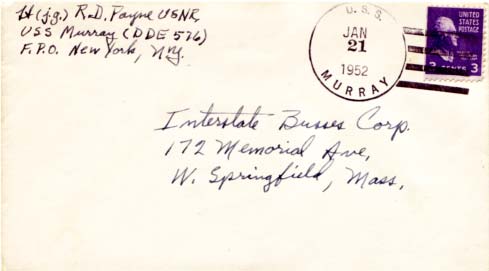 Lt (j.g.) R.D. Payne USNR,
USS Murray (DDE 576)
F.P.O. New York, N.Y.
U.S.S.
JAN
21
1952
MURRAY
UNITED
STATES
POSTAGE
CENTS 3
Interstate Busses Corp.
172 Memorial Ave,
W. Springfield, Mass.